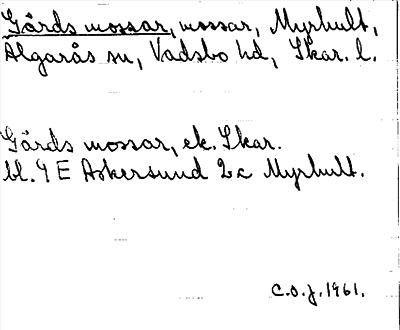 Gårds mossar, mossar, Myrhult,
Älgarås sn, Vadsbo hd, Skar. l.
Gårds mossar, ek. Skar.
bl. 9 E Askersund 2c Myrhult.
C.O.J. 1961.